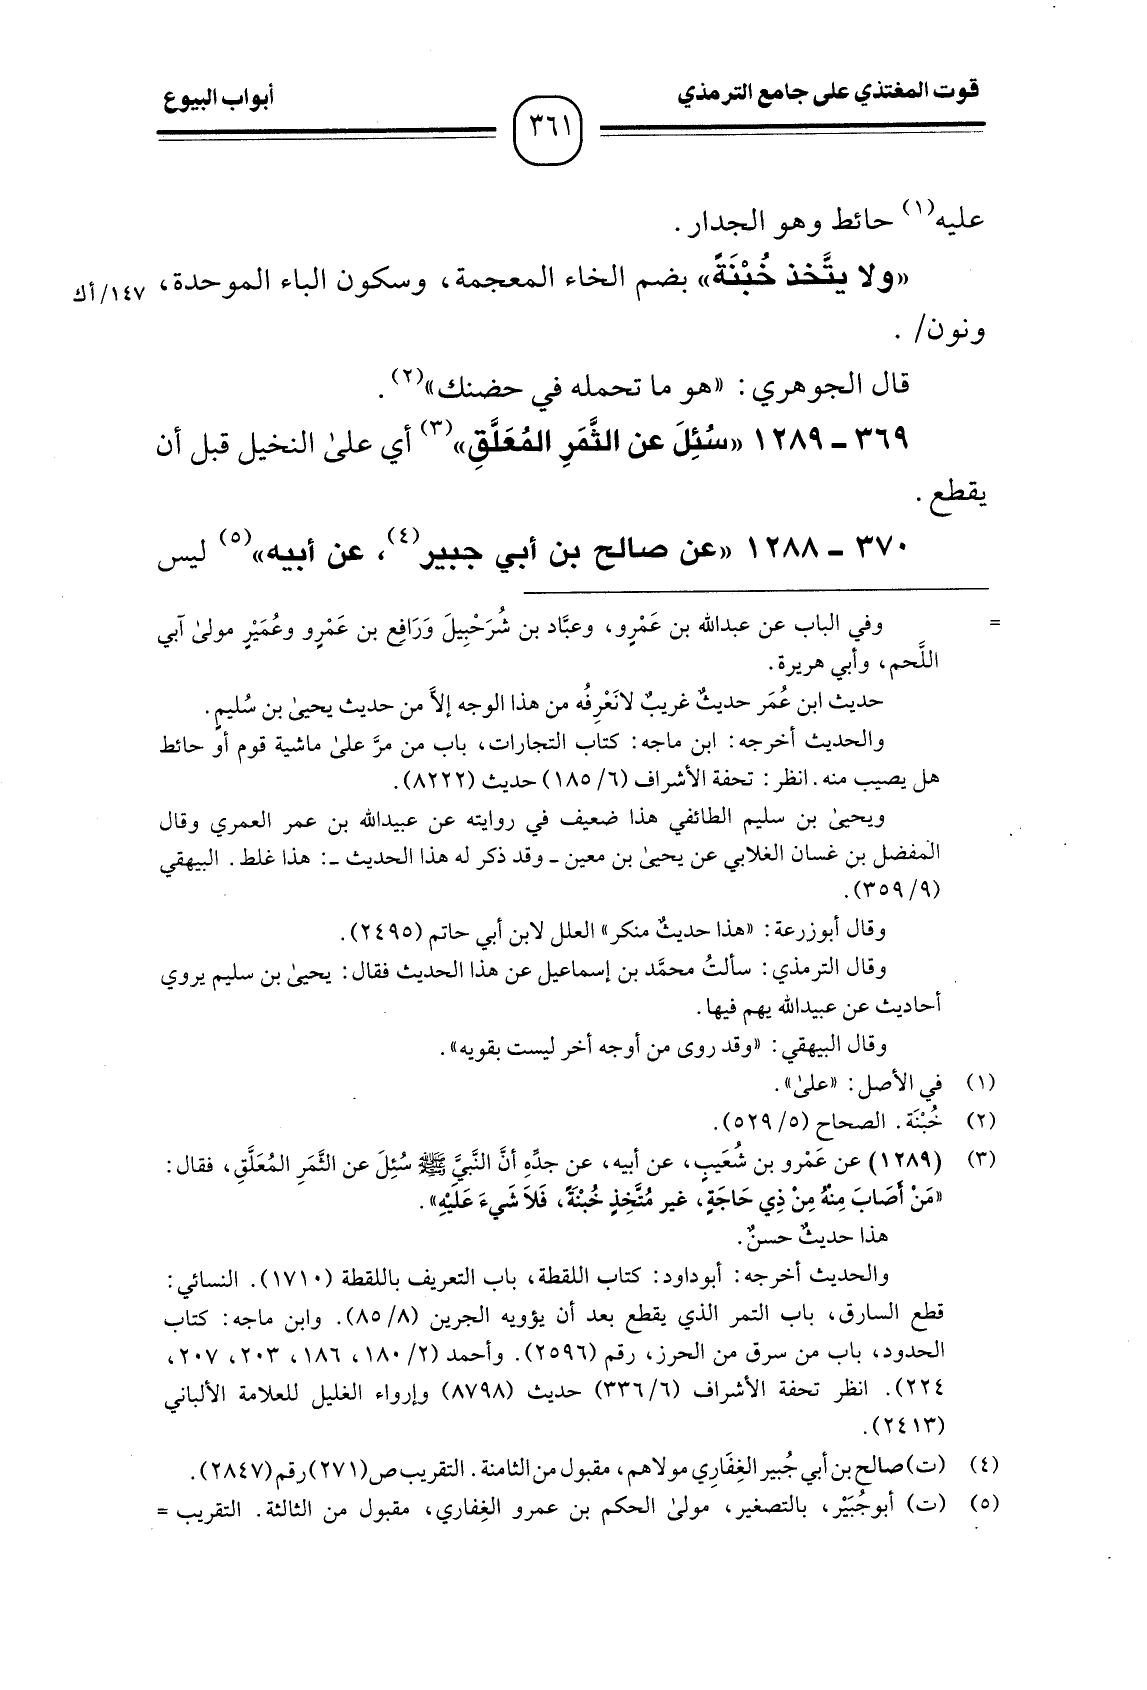 قوت المغتذي على جامع الترمذي
٣٦١
أبواب البيوع
عليه(١) حائط وهو الجدار.
«ولا يتَّخذ خُبْنَةً» بضم الخاء المعجمة، وسكون الباء الموحدة، ١٤٧/أك
ونون/ .
قال الجوهري: «هو ما تحمله في حضنك»(٢).
٣٦٩ ـ ١٢٨٩ «سُئِلَ عن الثَّمَرِ المُعَلَّقِ»(٣) أي علىٰ النخيل قبل أن
يقطع.
٣٧٠ ـ ١٢٨٨ «عن صالح بن أبي جبير(٤)، عن أبيه»(٥) ليس
= وفي الباب عن عبدالله بن عَمْرٍو، وعبَّاد بن شُرَحْبِيلَ وَرَافِع بن عَمْرٍو وعُمَيْرٍ مولىٰ آبي
اللَّحم، وأبي هريرة.
حديث ابن عُمَر حديثٌ غريبٌ لانَعْرِفُه من هذا الوجه إلاَّ من حديث يحيىٰ بن سُليمٍ.
والحديث أخرجه: ابن ماجه: كتاب التجارات، باب من مرَّ علىٰ ماشية قوم أو حائط
هل يصيب منه. انظر: تحفة الأشراف (٦/ ١٨٥) حديث (٨٢٢٢).
ويحيىٰ بن سليم الطائفي هذا ضعيف في روايته عن عبيدالله بن عمر العمري وقال
المفضل بن غسان الغلابي عن يحيىٰ بن معين ـ وقد ذكر له هذا الحديث ـ: هذا غلط. البيهقي
(٩/ ٣٥٩).
وقال أبوزرعة: «هذا حديثٌ منكر» العلل لابن أبي حاتم (٢٤٩٥).
وقال الترمذي: سألتُ محمَّد بن إسماعيل عن هذا الحديث فقال: يحيىٰ بن سليم يروي
أحاديث عن عبيدالله يهم فيها.
وقال البيهقي: «وقد روى من أوجه أخر ليست بقويه».
(١) في الأصل: «علىٰ».
(٢) خُبْنَة. الصحاح (٥/ ٥٢٩).
(٣) (١٢٨٩) عن عَمْرو بن شُعَيبٍ، عن أبيه، عن جدِّهِ أنَّ النبيَّ ﷺ سُئِلَ عن الثَّمَرِ المُعَلَّقِ، فقال:
«مَنْ أَصَابَ مِنْهُ مِنْ ذِي حَاجَةٍ، غير مُتَّخِذٍ خُبْنَةً، فَلاَ شَيءَ عَلَيْهِ».
هذا حديثٌ حسنٌ.
والحديث أخرجه: أبوداود: كتاب اللقطة، باب التعريف باللقطة (١٧١٠). النسائي:
قطع السارق، باب التمر الذي يقطع بعد أن يؤويه الجرين (٨/ ٨٥). وابن ماجه: كتاب
الحدود، باب من سرق من الحرز، رقم (٢٥٩٦). وأحمد (٢/ ١٨٠، ١٨٦، ٢٠٣، ٢٠٧،
٢٢٤). انظر تحفة الأشراف (٦/ ٣٣٦) حديث (٨٧٩٨) وإرواء الغليل للعلامة الألباني
(٢٤١٣).
(٤) (ت) صالح بن أبي جُبير الغِفَارِي مولاهم، مقبول من الثامنة. التقريب ص(٢٧١) رقم (٢٨٤٧).
(٥) (ت) أبوجُبَيْر، بالتصغير، مولىٰ الحكم بن عمرو الغِفاري، مقبول من الثالثة. التقريب =